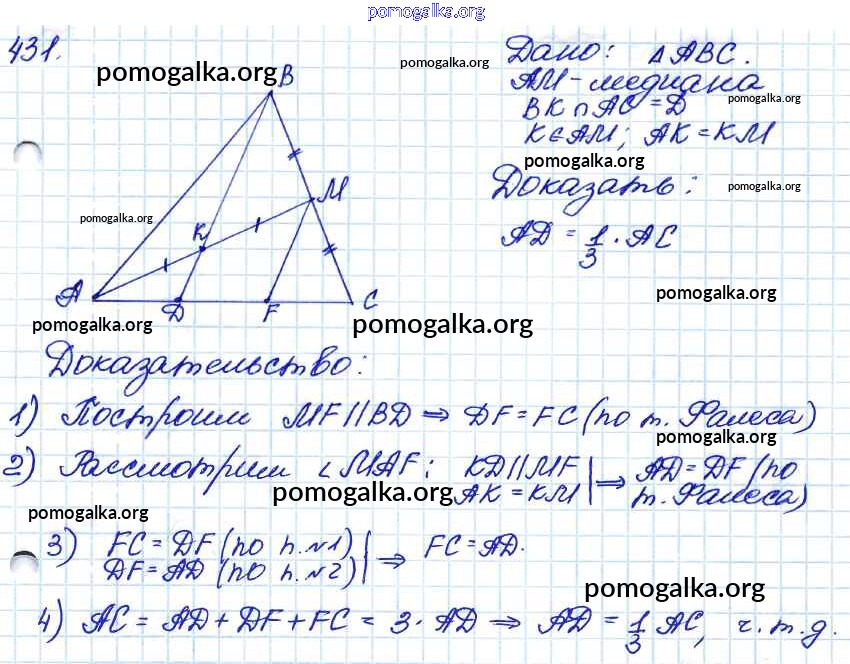 pomogalka.org
431.
pomogalka.org
B
M
K
A
D
F
C
pomogalka.org
pomogalka.org
pomogalka.org
Дано: Δ ABC.
pomogalka.org
AM - медиана
pomogalka.org
BK ∩ AC = D
K ∈ AM; AK = KM
pomogalka.org
Доказать:
pomogalka.org
AD = 1/3 · AC
pomogalka.org
Доказательство:
1) Построим MF || BD ⇒ DF = FC (по т. Фалеса)
pomogalka.org
2) Рассмотрим ∠ MAF: KD || MF | ⇒ AD = DF (по
pomogalka.org
AK = KM | т. Фалеса)
pomogalka.org
3) FC = DF (по п. №1) | ⇒ FC = AD.
DF = AD (по п. №2) |
pomogalka.org
4) AC = AD + DF + FC = 3 · AD ⇒ AD = 1/3 AC, ч. т. д.